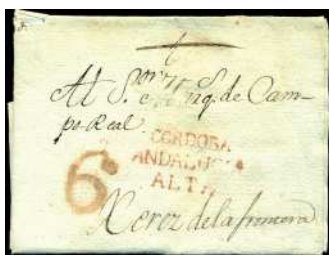 Al S.or Marq. de Cam-
po Real
CORDOBA
ANDALUCIA
ALTA
6
Xerez de la frontera